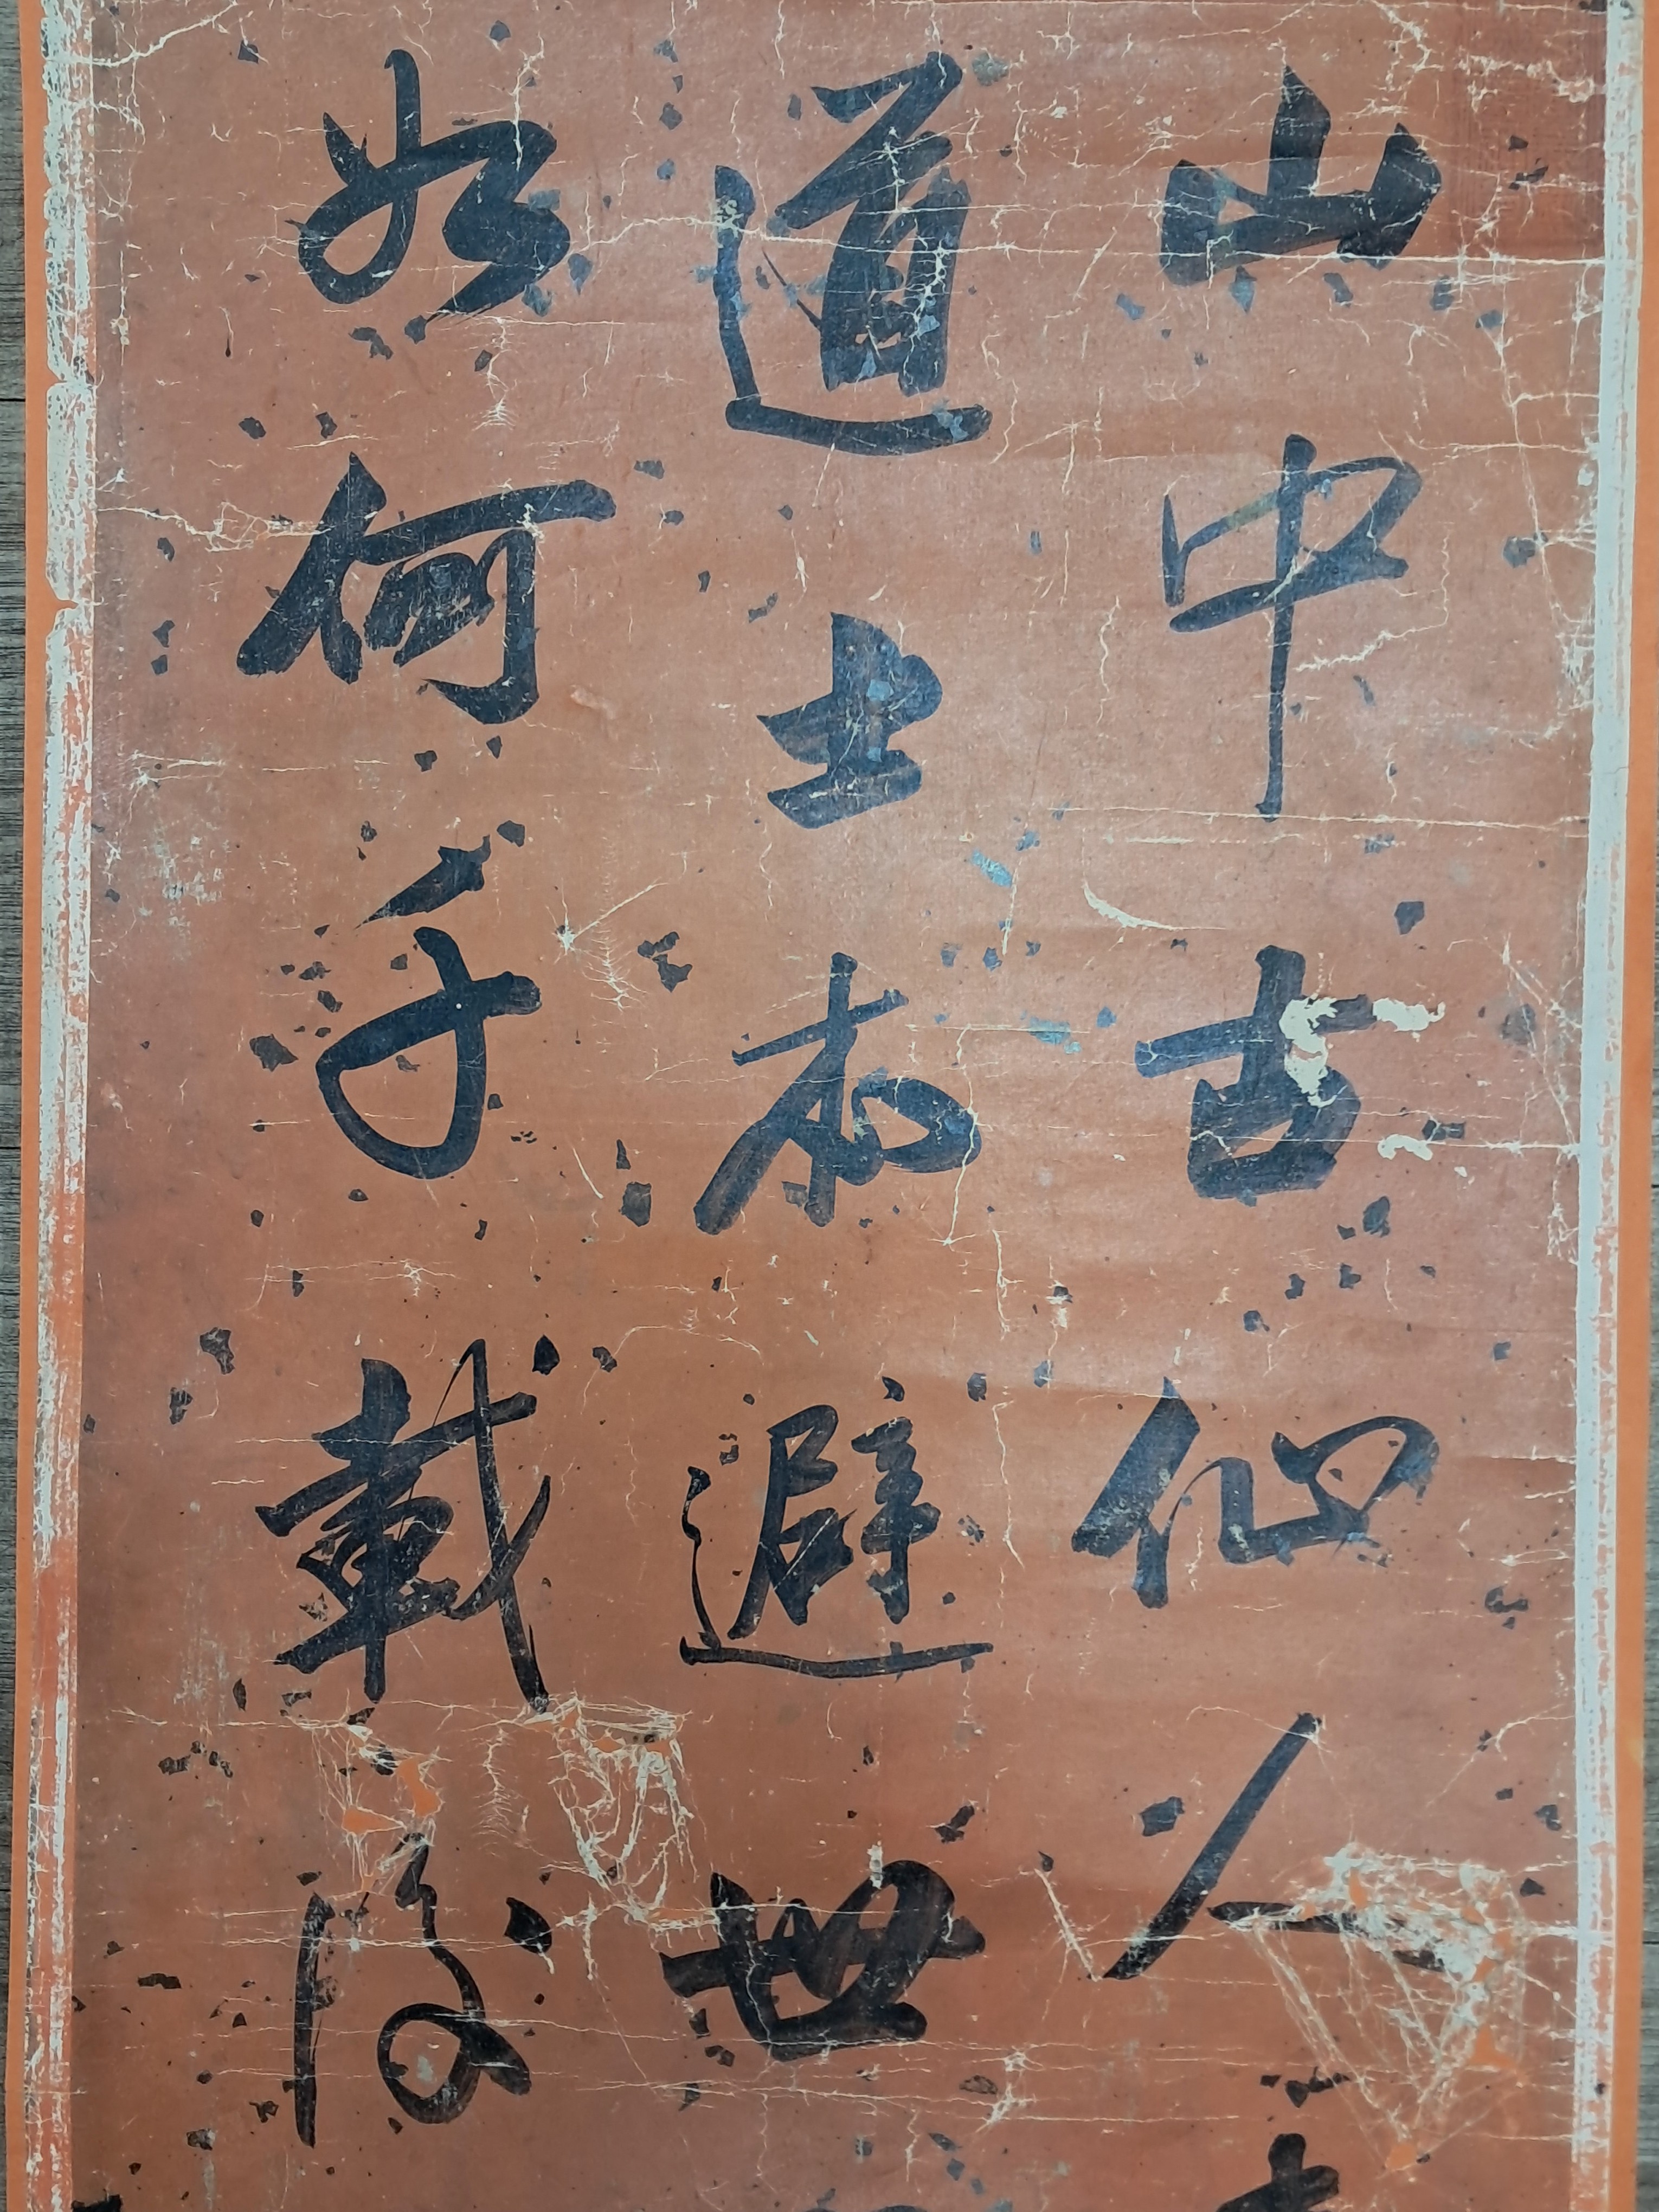 山中古仙人
道士本避世
如何千載後